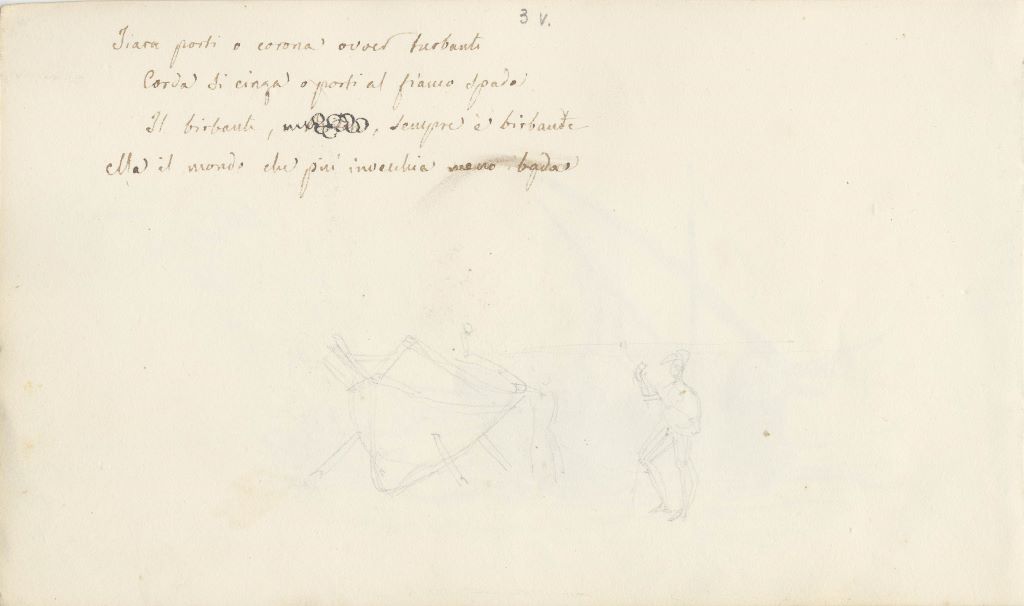 3 v.
Tiara porti o corona ovver turbante
Corda si cinga o porti al fianco spada
Il birbante, sempre è birbante
Ma il mondo che più invecchia meno bada